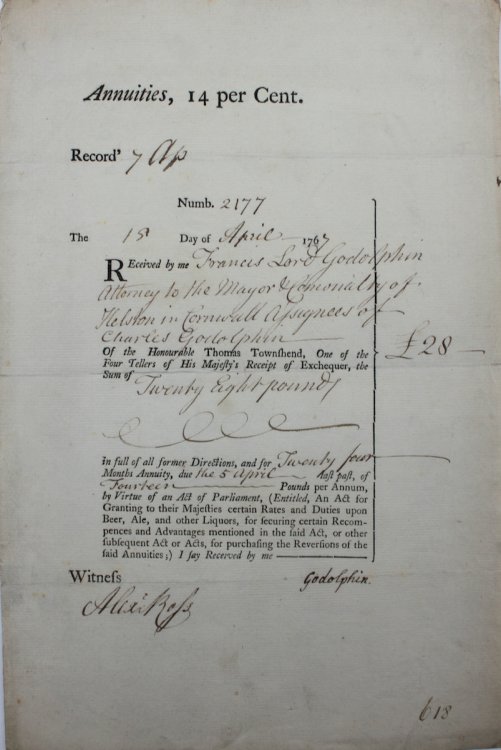 Annuities, 14 per Cent.
Record' 7 Ap
Numb. 2177
The 18 Day of April 1767
REceived by me Francis Lord Godolphin
Attorney to the Mayor & Comonalty of
Helston in Cornwall Assignees of
Charles Godolphin
Of the Honourable Thomas Townshend, One of the
Four Tellers of His Majesty's Receipt of Exchequer, the
Sum of Twenty Eight pounds
£28
in full of all former Directions, and for Twenty four
Months Annuity, due the 5 April last past, of
Fourteen Pounds per Annum,
by Virtue of an Act of Parliament, (Entitled, An Act for
Granting to their Majesties certain Rates and Duties upon
Beer, Ale, and other Liquors, for securing certain Recom-
pences and Advantages mentioned in the said Act, or other
subsequent Act or Acts, for purchasing the Reversions of the
said Annuities;) I say Received by me
Witness Godolphin.
Alexr Ross
618